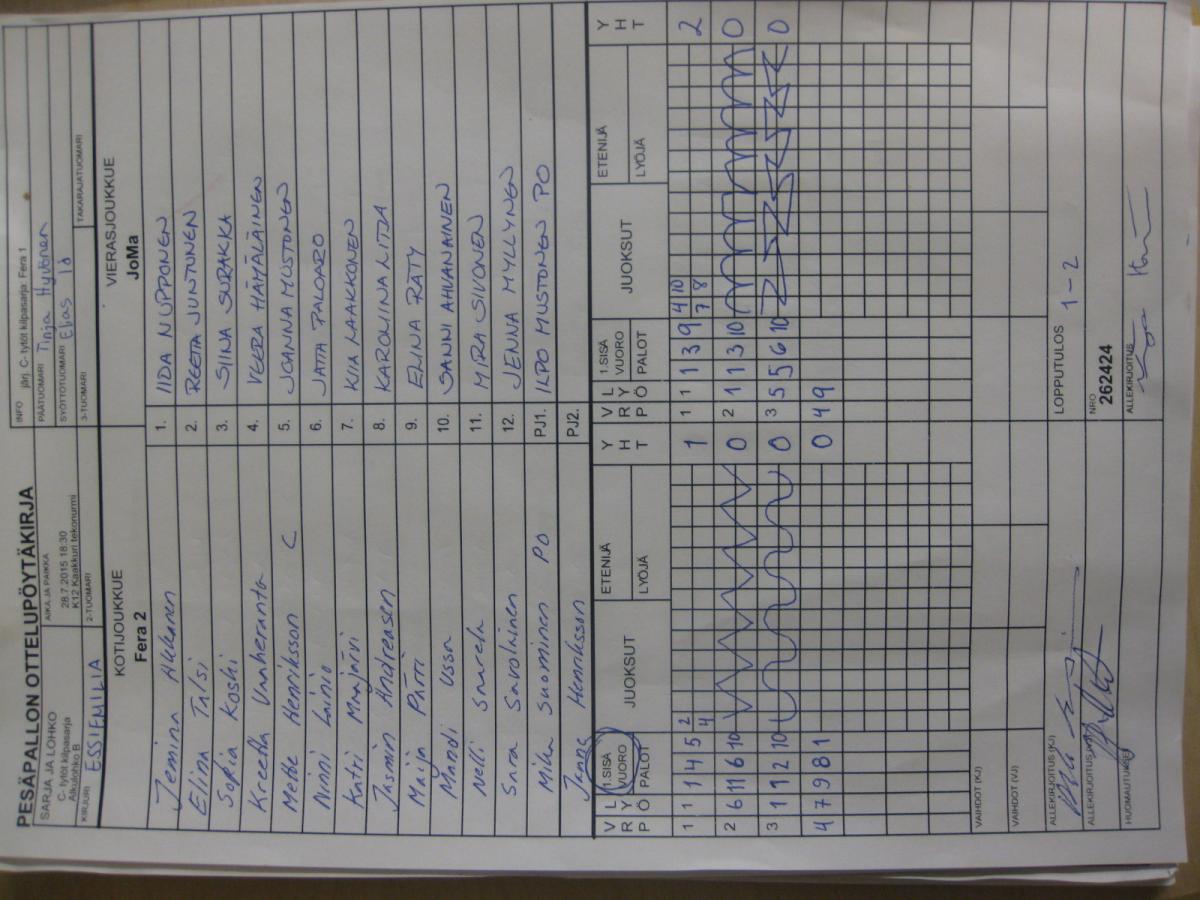 PESÄPALLON OTTELUPÖYTÄKIRJA
SARJA JA LOHKO
C- tytöt kilpasarja
Alkulohko B
AIKA JA PAIKKA
28.7.2015 18:30
K12 Kaakkuri tekonurmi
INFO järj. C- tytöt kilpasarja: Fera 1
PÄÄTUOMARI Tinja Hyvönen
SYÖTTÖTUOMARI Elias
KIRJURI ESSIEMILIA
2-TUOMARI
3-TUOMARI
TAKARAJATUOMARI
KOTIJOUKKUE
Fera 2
VIERASJOUKKUE
JoMa
Jemina 1. IIDA NUPPONEN
Elina Talsi 2. REETTA JUNTUNEN
Sofia Koski 3. SIINA SURAKKA
Kreetta Vanheranta 4. VEERA HÄMÄLÄINEN
Mette Henriksson C 5. JOANNA MUSTONEN
Ninni Lainio 6. JATTA PALOARO
Katri Maajärvi 7. KIIA LAAKKONEN
Jasmin Andreasen 8. KAROLIINA LITJA
Maija Pätti 9. ELINA RÄTY
Mandi Ussa 10. SANNI AHVANAINEN
Nelli Saarela 11. MIRA SIVONEN
Sara Savolainen 12. JENNA MYLLYNEN
Mika Suominen PO PJ1. ILPO MUSTONEN PO
Janne Henriksson PJ2.
V L 1.SISÄ JUOKSUT ETENIJÄ Y V L 1.SISÄ JUOKSUT ETENIJÄ Y
R Y VUORO H R Y VUORO H
P Ö PALOT LYÖJÄ T P Ö PALOT LYÖJÄ T
1 1 1 4 5 2 4 1 1 1 1 3 9 4 10 7 8 2
2 6 11 6 10 0 2 1 1 3 10 0
3 1 1 2 10 0 3 5 5 6 10 0
4 7 9 8 1 0 4 9
VAIHDOT (KJ)
VAIHDOT (VJ)
ALLEKIRJOITUS (KJ)
LOPPUTULOS 1-2
NRO
262424
HUOMAUTUKSET
ALLEKIRJOITUS